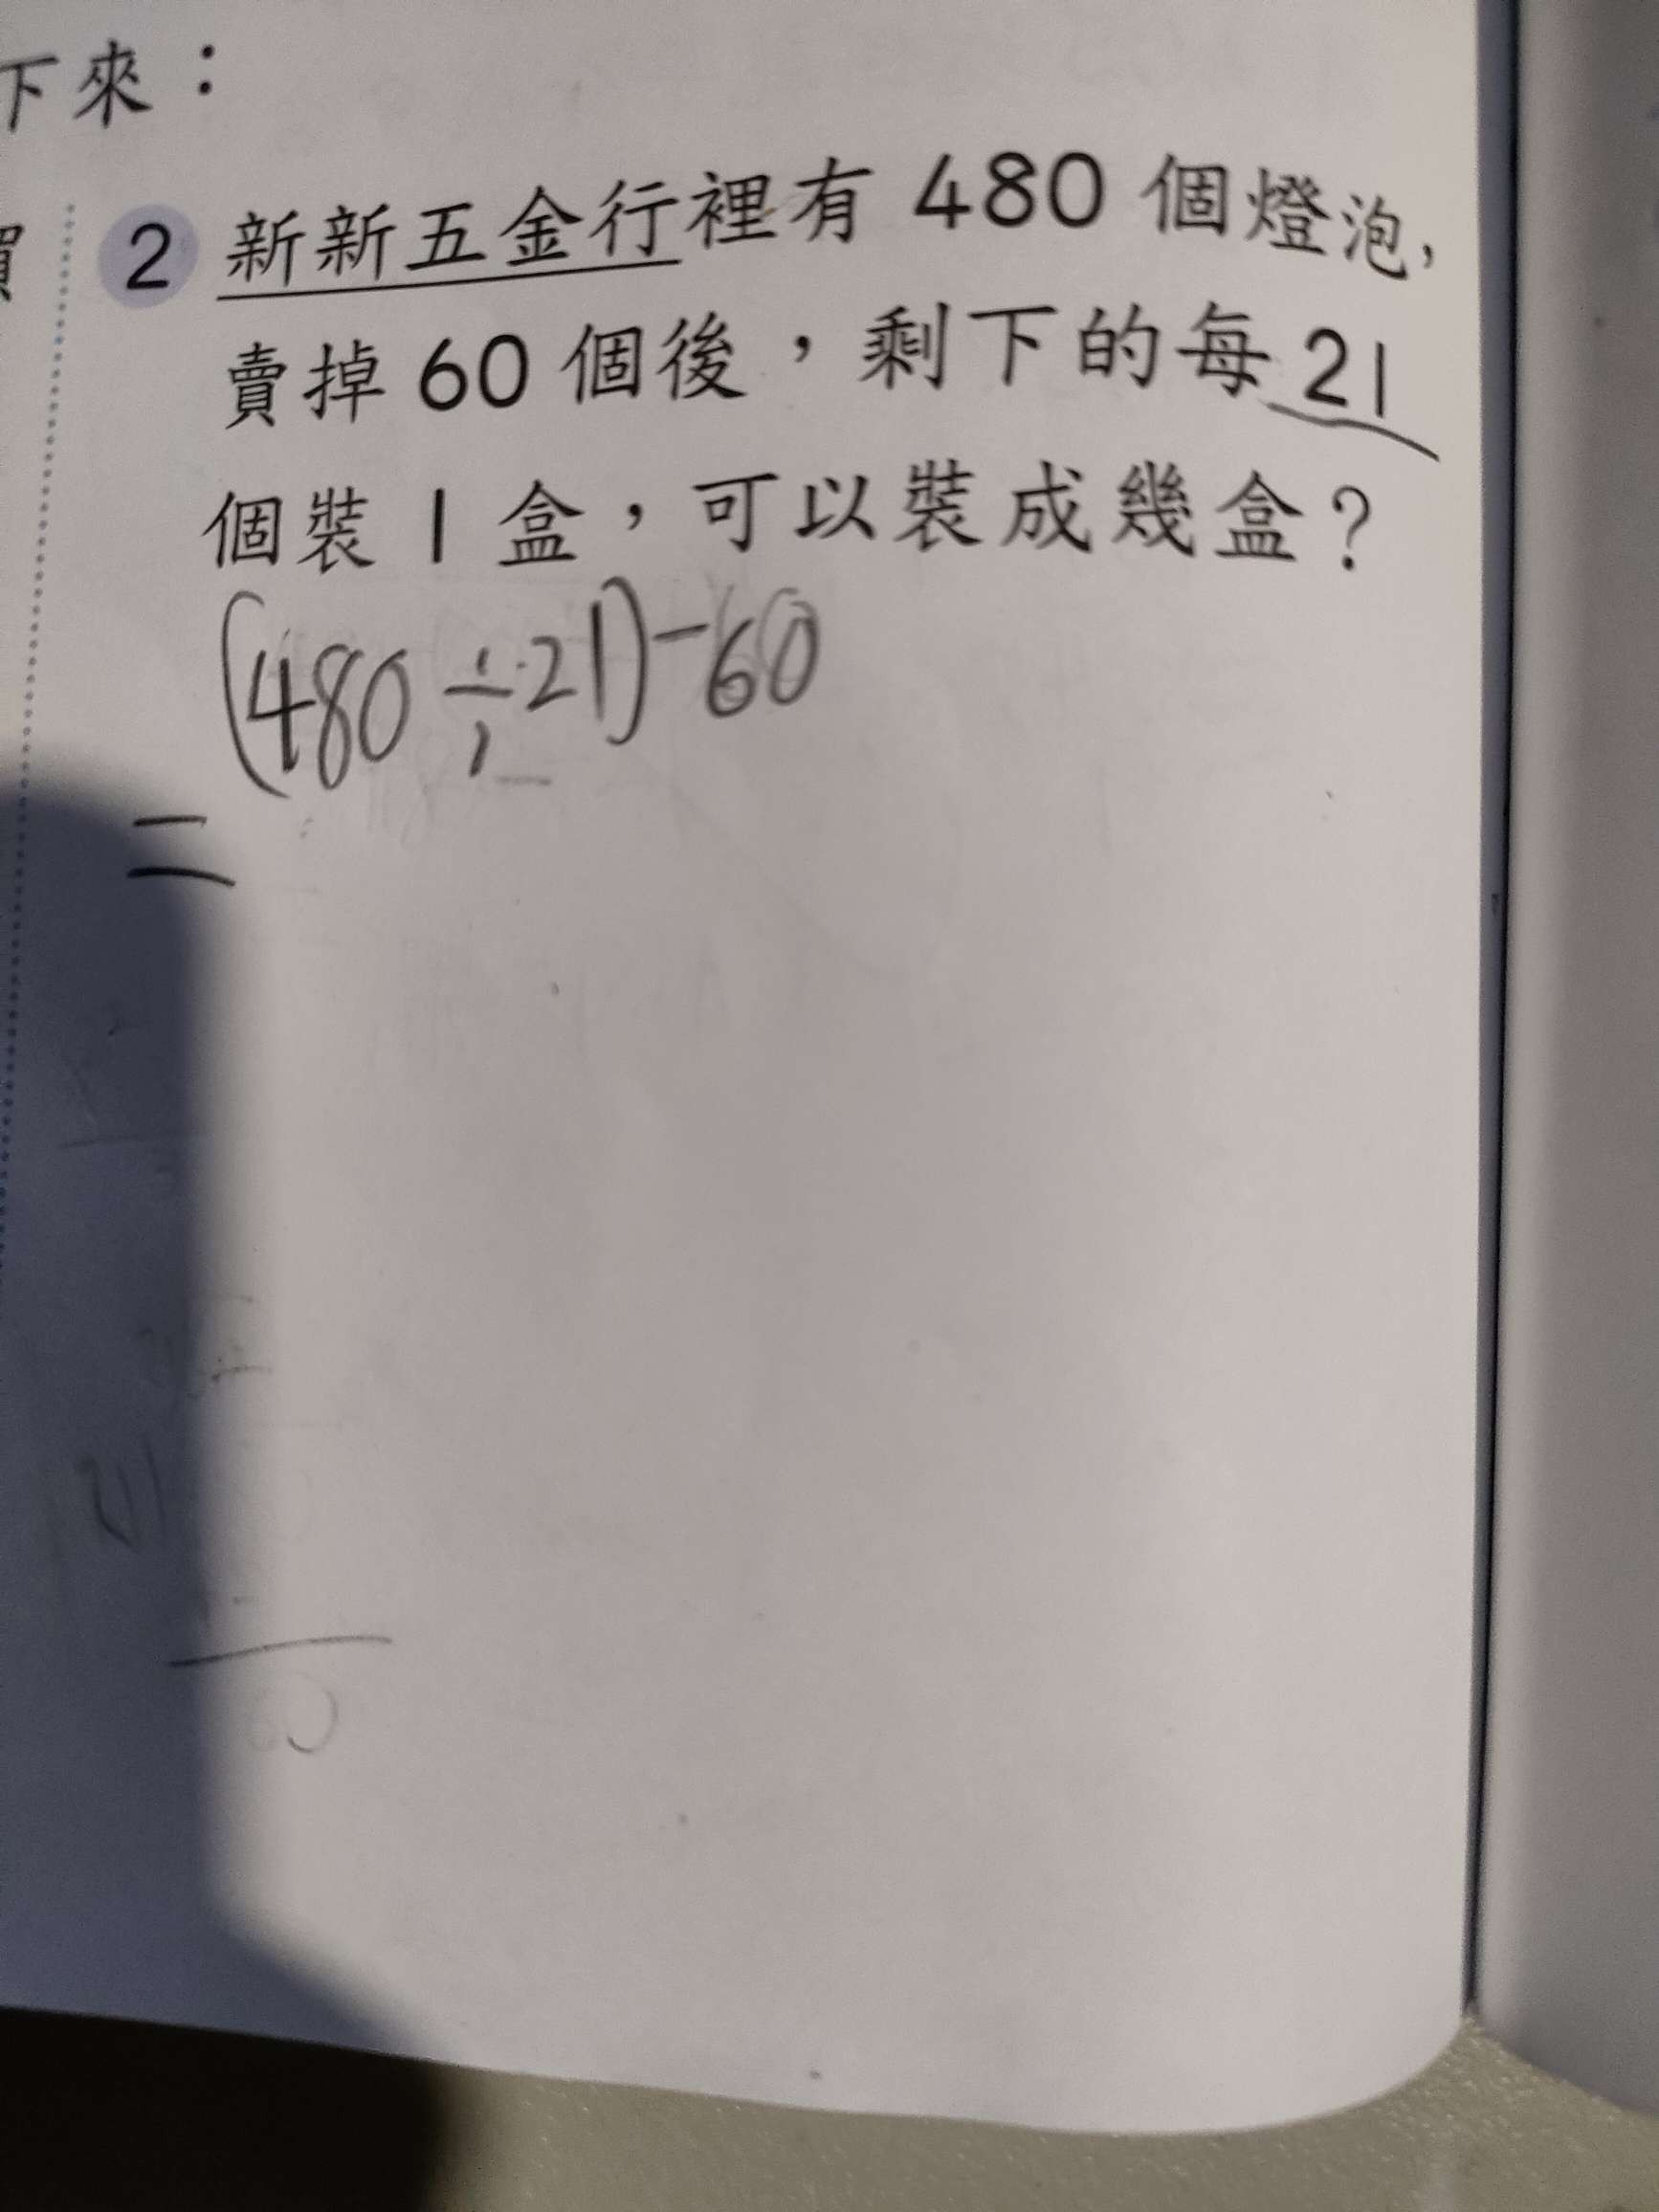 下來：
2 新新五金行裡有 480 個燈泡，
賣掉 60 個後，剩下的每 21
個裝 1 盒，可以裝成幾盒？
(480÷21)-60
=